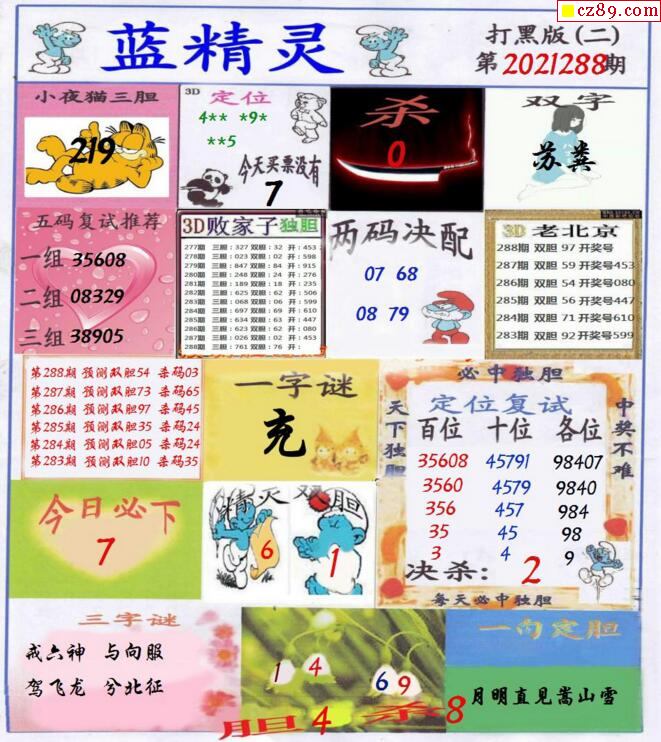 cz89.com
蓝精灵
打黑版(二)
第2021288期
小夜猫三胆
219
3D 定位
4** *9*
**5
今天买票没有
7
杀
0
双字
苏粪
五码复试推荐
一组 35608
二组 08329
三组 38905
3D败家子独胆
277期 三胆:327 双胆:32 开:453
278期 三胆:023 双胆:02 开:598
279期 三胆:847 双胆:84 开:915
280期 三胆:248 双胆:24 开:276
281期 三胆:189 双胆:18 开:235
282期 三胆:625 双胆:62 开:506
283期 三胆:068 双胆:06 开:599
284期 三胆:697 双胆:69 开:610
285期 三胆:634 双胆:63 开:447
286期 三胆:623 双胆:62 开:080
287期 三胆:026 双胆:02 开:453
288期 三胆:761 双胆:76 开:
两码决配
07 68
08 79
3D 老北京
288期 双胆 97 开奖号
287期 双胆 59 开奖号453
286期 双胆 54 开奖号080
285期 双胆 56 开奖号447
284期 双胆 71 开奖号610
283期 双胆 92 开奖号599
第288期 预测双胆54 杀码03
第287期 预测双胆73 杀码65
第286期 预测双胆97 杀码45
第285期 预测双胆35 杀码24
第284期 预测双胆05 杀码24
第283期 预测双胆10 杀码35
一字谜
充
必中独胆
天下独胆
中奖不难
定位复试
百位 十位 各位
35608 45791 98407
3560 4579 9840
356 457 984
35 45 98
3 4 9
决杀: 2
每天必中独胆
今日必下
7
精灵双胆
6
1
三字谜
戒六神 与向服
驾飞龙 兮北征
1 4
6 9
胆 4 杀 8
一句定胆
月明直见嵩山雪